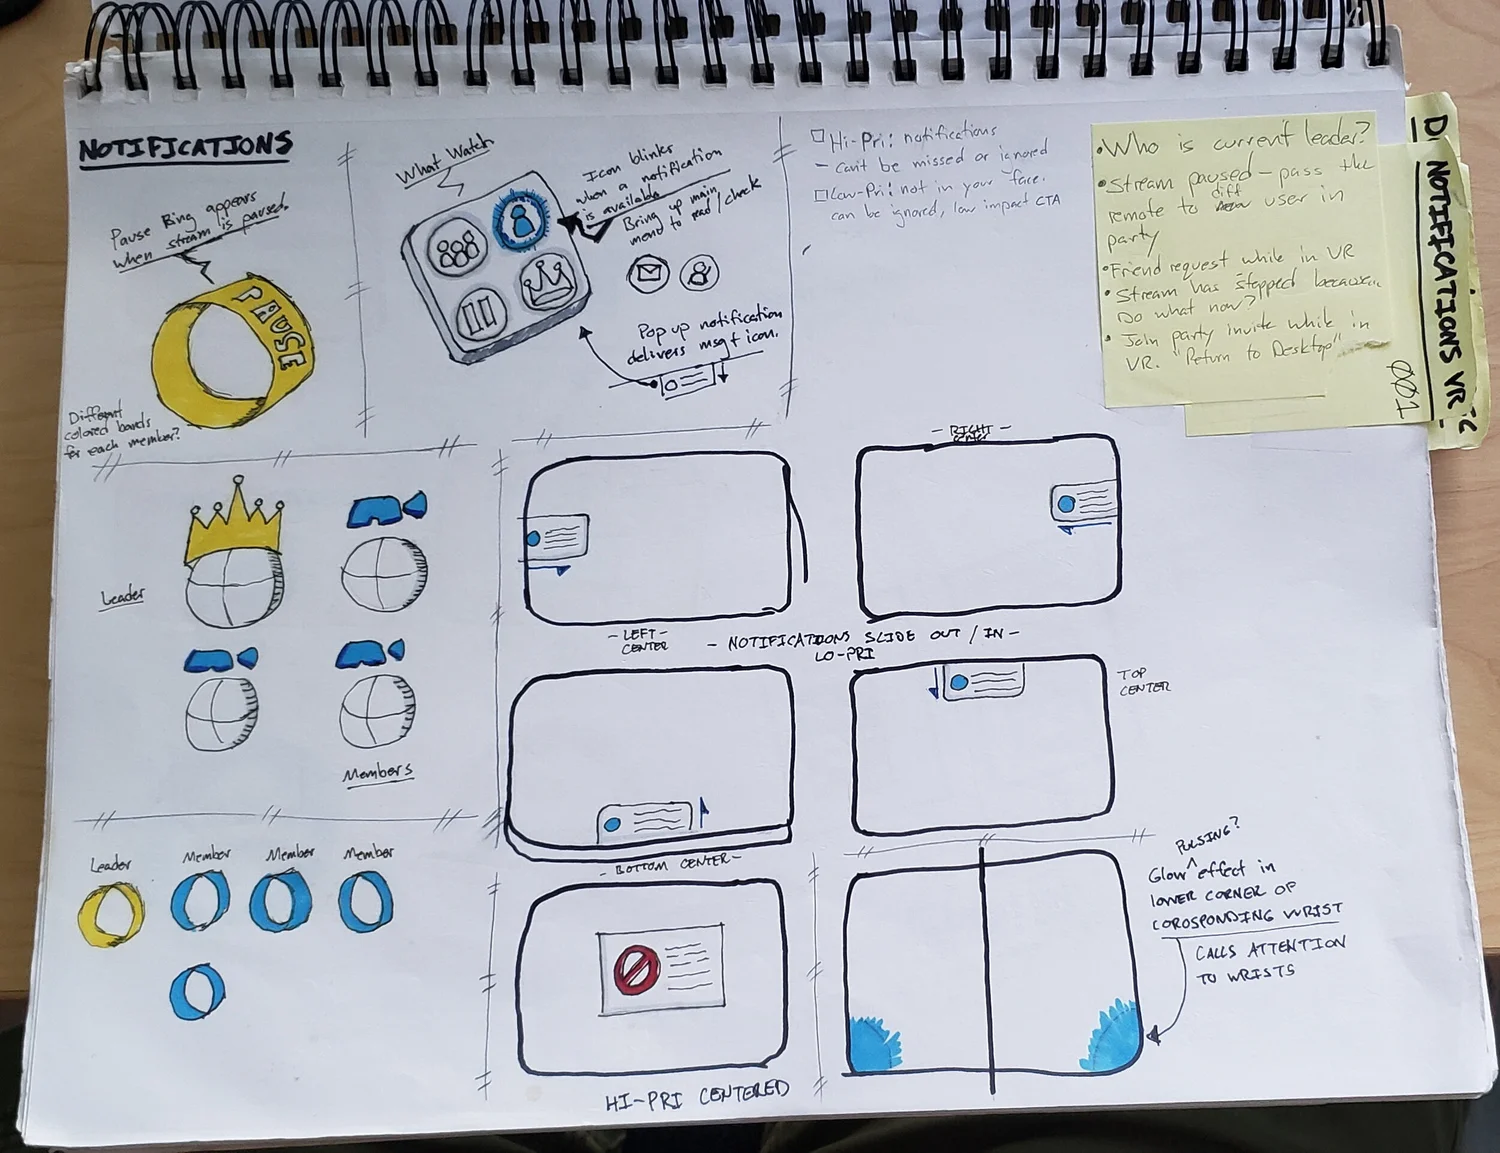 NOTIFICATIONS
Pause Ring appears
when stream is paused.
PAUSE
Different
colored bands
for each member?
What Watch
Icon blinks
when a notification
is available
Bring up main
menu to read/check
Pop up notification
delivers msg + icon.
Hi-Pri: notifications
- can't be missed or ignored
Low-Pri: not in your face.
can be ignored, low impact CTA
• Who is current leader?
• Stream paused - pass the
remote to diff user in
party
• Friend request while in VR
• Stream has stopped because...
Do what now?
• Join party invite while in
VR. "Return to Desktop"
001
NOTIFICATIONS VR
Leader
Members
- LEFT -
CENTER
- RIGHT -
Center
- NOTIFICATIONS SLIDE OUT / IN -
LO-PRI
TOP
CENTER
- BOTTOM CENTER -
Leader
Member
Member
Member
HI-PRI CENTERED
PULSING?
Glow ^ effect in
LOWER CORNER OF
COROSPONDING WRIST
CALLS ATTENTION
TO WRISTS